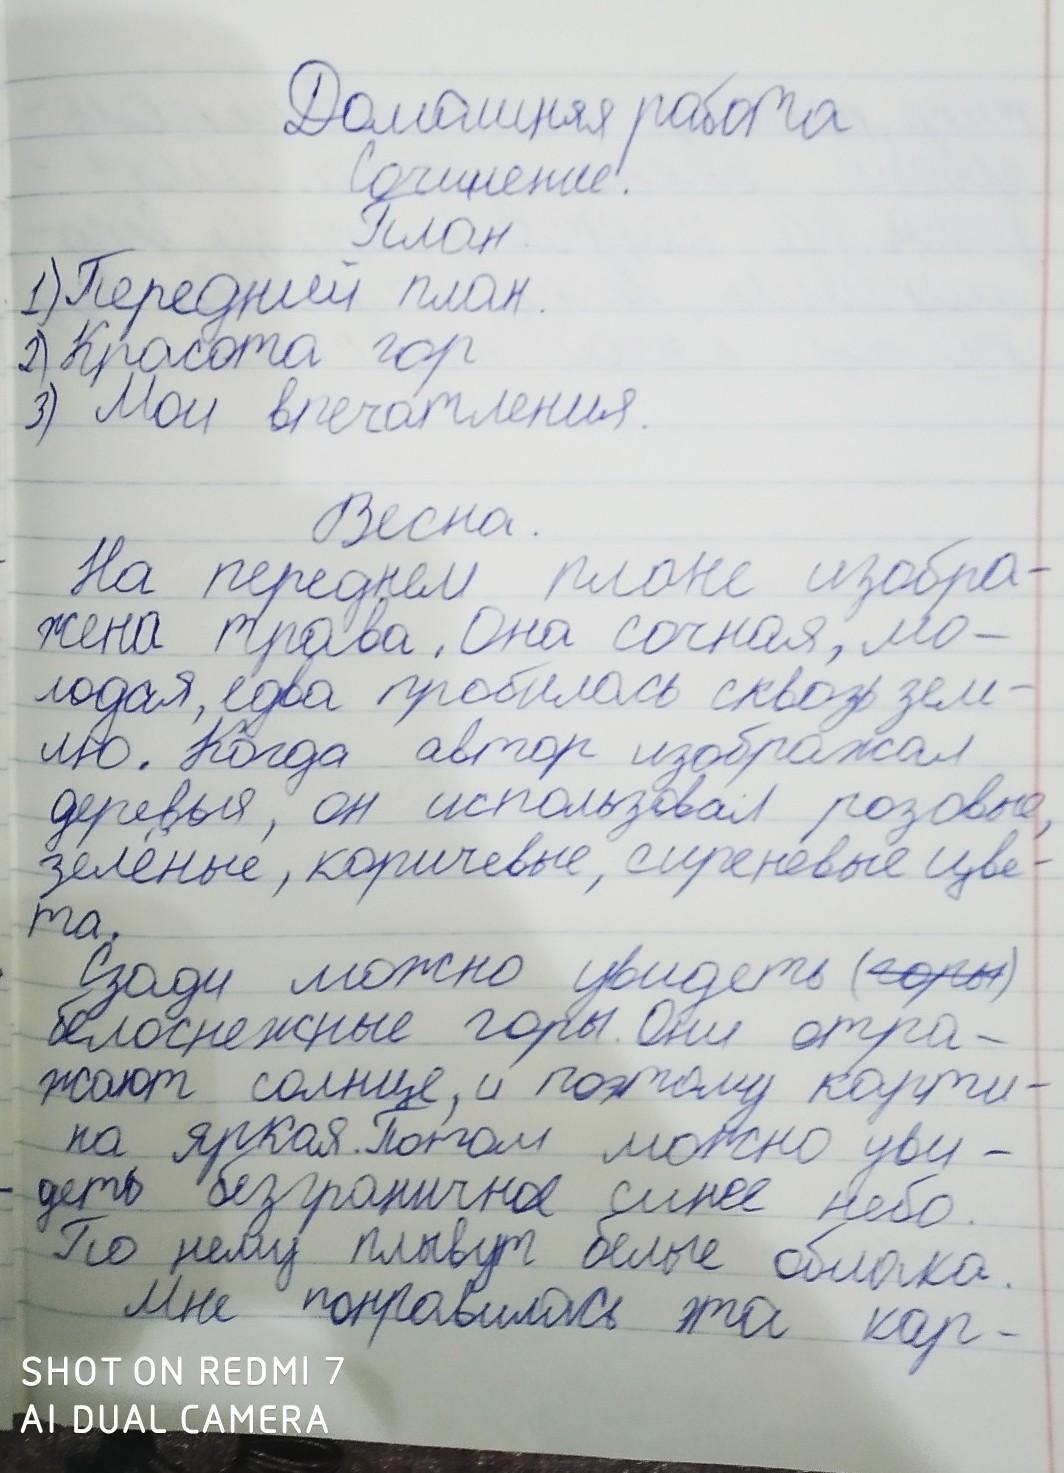 Домашняя работа
Сочинение.
План.
1) Передний план.
2) Красота гор
3) Мои впечатления.
Весна.
На переднем плане изобра-
жена трава. Она сочная, мо-
лодая, едва пробилась сквозь зем-
лю. Когда автор изображал
деревья, он использовал розовые,
зелёные, коричевые, сиреневые цве-
та.
Сзади можно увидеть (горы)
белоснежные горы. Они отра-
жают солнце, и поэтому карти-
на яркая. Потом можно уви-
деть безграничное синее небо.
По нему плывут белые облака.
Мне понравилась эта кар-
SHOT ON REDMI 7
AI DUAL CAMERA